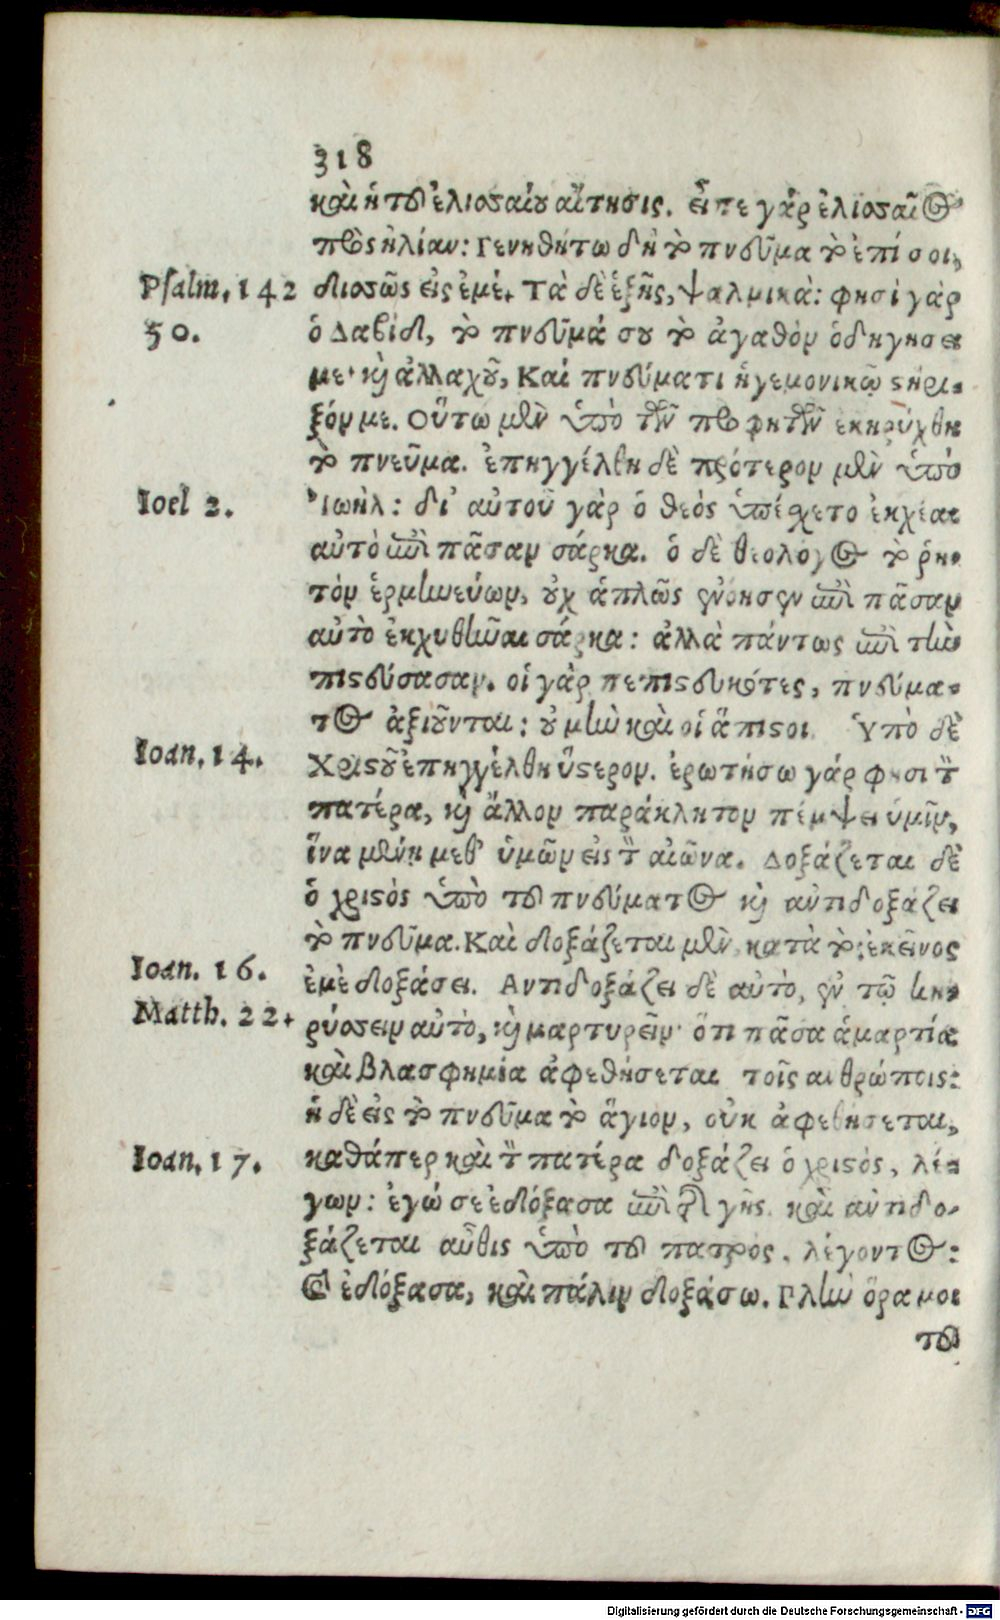 318
καὶ ἡ τοῦ ἐλισσαίου αἴτησις. εἶπε γάρ ἐλισσαῖος
πρὸς ἠλίαν: Γενηθήτω δὴ τὸ πνεῦμα τὸ ἐπί σοι,
Psalm. 142 δισσῶς εἰς ἐμέ. Τὰ δὲ ἑξῆς, ψαλμικὰ: φησὶ γὰρ
50. ὁ Δαβίδ, τὸ πνεῦμά σου τὸ ἀγαθὸν ὁδηγήσει
με· καὶ ἀλλαχοῦ, Καὶ πνεύματι ἡγεμονικῷ στήρι-
ξόν με. Οὕτω μὲν ὑπὸ τῶν προφητῶν ἐκηρύχθη
τὸ πνεῦμα. ἐπηγγέλθη δὲ πρότερον μὲν ὑπὸ
Ioel 2. Ἰωήλ: δι' αὐτοῦ γὰρ ὁ θεὸς ὑπέσχετο ἐκχέαι
αὐτὸ ἐπὶ πᾶσαν σάρκα. ὁ δὲ θεολόγος τὸ ῥη-
τὸν ἑρμηνεύων, οὐχ ἁπλῶς ἐνόησεν ἐπὶ πᾶσαν
αὐτὸ ἐκχυθῆναι σάρκα: ἀλλὰ πάντως ἐπὶ τὴν
πιστεύσασαν. οἱ γὰρ πεπιστευκότες, πνεύμα-
τος ἀξιοῦνται: οὐ μὴν καὶ οἱ ἄπιστοι. Ὑπὸ δὲ
Ioan. 14. Χριστοῦ ἐπηγγέλθη ὕστερον. ἐρωτήσω γάρ φησι τὸν
πατέρα, καὶ ἄλλον παράκλητον πέμψει ὑμῖν,
ἵνα μένῃ μεθ' ὑμῶν εἰς τὸν αἰῶνα. Δοξάζεται δὲ
ὁ χριστὸς ὑπὸ τοῦ πνεύματος καὶ αὐτιδοξάζει
τὸ πνεῦμα. Καὶ δοξάζεται μὲν κατὰ τὸ: ἐκεῖνος
Ioan. 16. ἐμὲ δοξάσει. Αντιδοξάζει δὲ αὐτὸ, ἐν τῷ κη-
Matth. 22. ρύσσειν αὐτὸ, καὶ μαρτυρεῖν· ὅτι πᾶσα ἁμαρτία
καὶ βλασφημία ἀφεθήσεται τοῖς ανθρώποις:
ἡ δὲ εἰς τὸ πνεῦμα τὸ ἅγιον, οὐκ ἀφεθήσεται,
Ioan. 17. καθάπερ καὶ τὸν πατέρα δοξάζει ὁ χριστός, λέ-
γων: ἐγώ σε ἐδόξασα ἐπὶ τῆς γῆς. καὶ αὐτιδο-
ξάζεται αὖθις ὑπὸ τοῦ πατρός. λέγοντος:
Καὶ ἐδόξασα, καὶ πάλιν δοξάσω. Πλὴν ὅρα μοι
τοῦ
Digitalisierung gefördert durch die Deutsche Forschungsgemeinschaft - DFG